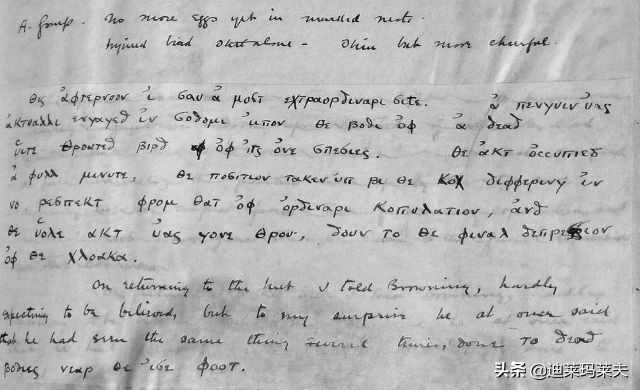 A. Group. No more eggs yet in marked nests.
Injured bird still alone – thin but more cheerful.
θις ἀφτερνοον ἰ σαυ ἀ μοστ εχτραορδιναρι σιτε. ἀ πενγυιν ὐας
ἀκτυαλλι ενγαγεδ ἰν σοδομι ὐπον θε βοδι ὀφ ἀ δεαδ
ὑιτε θροατεδ βιρδ ὀφ ἰτς ὀνε σπεσιες. θε ἀκτ ὀccυπιεδ
ἀ φυλλ μινυτε, θε ποσιτιον τακεν ὐπ βι θε κοκ διφφερινγ ἰν
νο ρεσπεκτ φρομ θατ ὀφ ὀρδιναρι κοπυλατιον, ἀνδ
θε ὑολε ακτ ὐας γονε θρου, δουν το θε φιναλ δεπρεσσιον
ὀφ θε χλοακα.
On returning to the hut I told Browning, hardly
expecting to be believed, but to my surprise he at once said
that he had seen the same thing several times, done to dead
βοδιες νεαρ θε ἰσε φοοτ.
头条 @迪莱玛莱夫